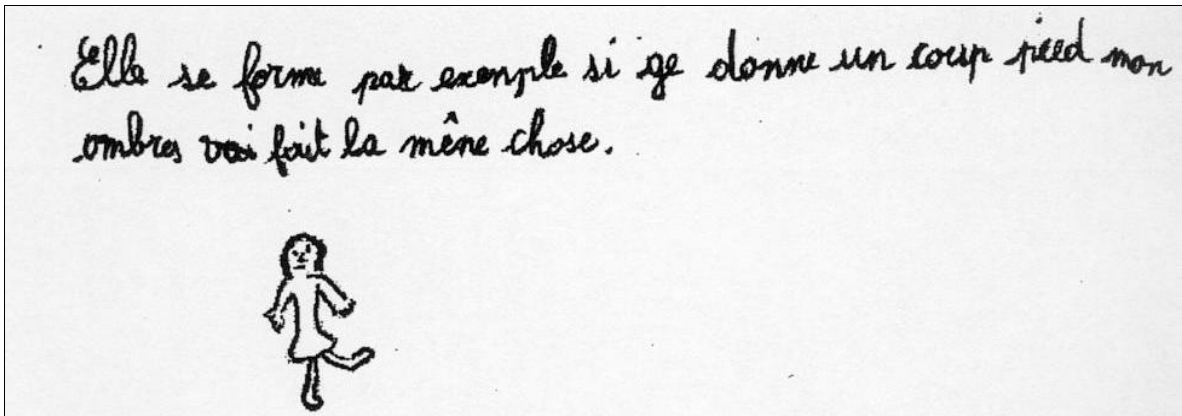 Elle se forme par exemple si ge donne un coup pied mon
ombres vai fait la mêne chose.